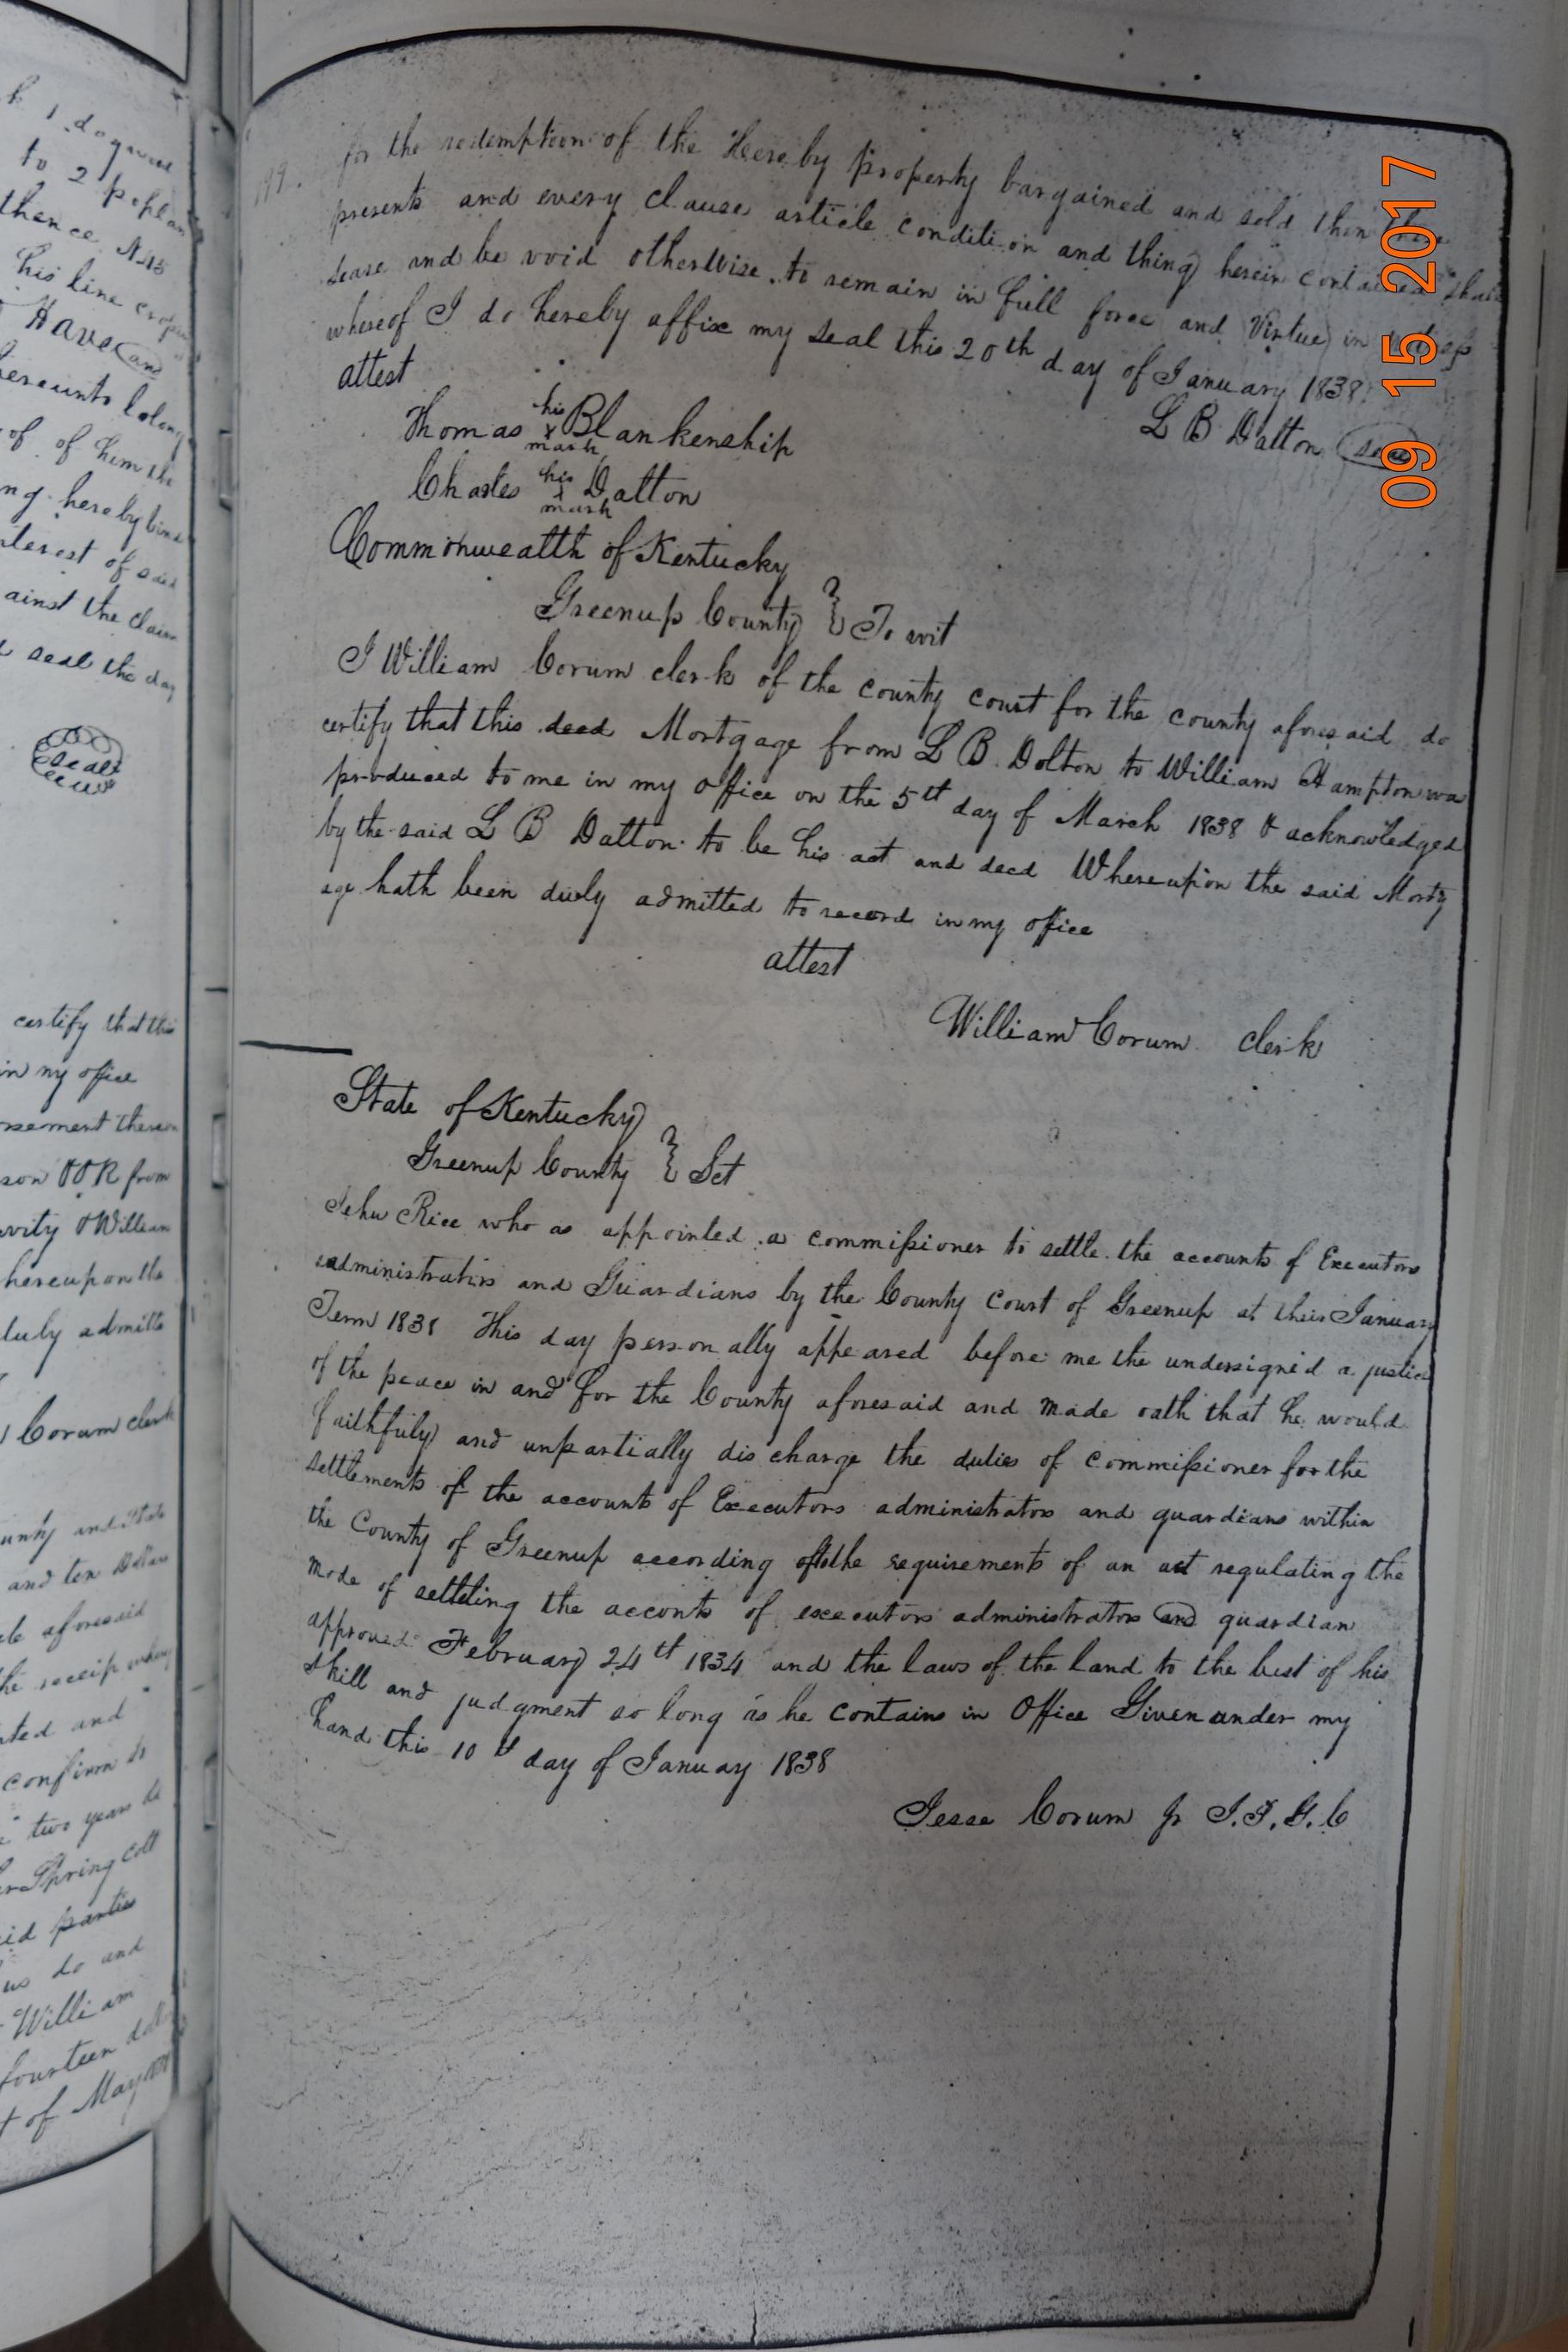 k 1 dogwood
to 2 poplar
thence N 45
his line
Have and
hereunto belong
of of him the
ng hereby bind
nterest of said
ainst the claim
seal the day
Seal
certify that this
in my office
rsement thereon
son & R from
vity & William
hereupon the
duly admitte
Corum clerk
unty and State
and ten Dollars
aforesaid
the receip
ted and
confirm
two years
Spring colt
id parties
us do and
William
fourteen
t of May
199.
for the redemption of the Hereby property bargained and sold then these
presents and every clause article condition and thing herein contained shall
sease and be void otherwise to remain in full force and Virtue in
whereof I do hereby affix my seal this 20th day of January 1838
attest
L B Dalton seal
Thomas his x mark Blankenship
Charles his x mark Dalton
Commonwealth of Kentucky
Greenup County } To wit
I William Corum clerk of the county court for the county aforesaid do
certify that this deed Mortgage from L B Dolton to William Hampton wa
produced to me in my office on the 5th day of March 1838 & acknowledged
by the said L B Dalton to be his act and deed Whereupon the said Mortg
age hath been duely admitted to record in my office
attest
William Corum clerk
State of Kentucky
Greenup County } Sct
Jehu Rice who as appointed a commissioner to settle the accounts of Executors
administrators and Guardians by the County Court of Greenup at their January
Term 1838 This day personally appeared before me the undersigned a justice
of the peace in and for the County aforesaid and made oath that he would
faithfuly and unpartially discharge the duties of commissioner for the
settlements of the accounts of Executors administrators and guardians within
the County of Greenup according the requirements of an act regulating the
mode of settleing the acconts of executors administrators and guardian
approved February 24th 1834 and the laws of the land to the best of his
skill and judgment so long as he contains in Office Given under my
hand this 10th day of January 1838
Jesse Corum jr J.P.G.C
09 15 2017